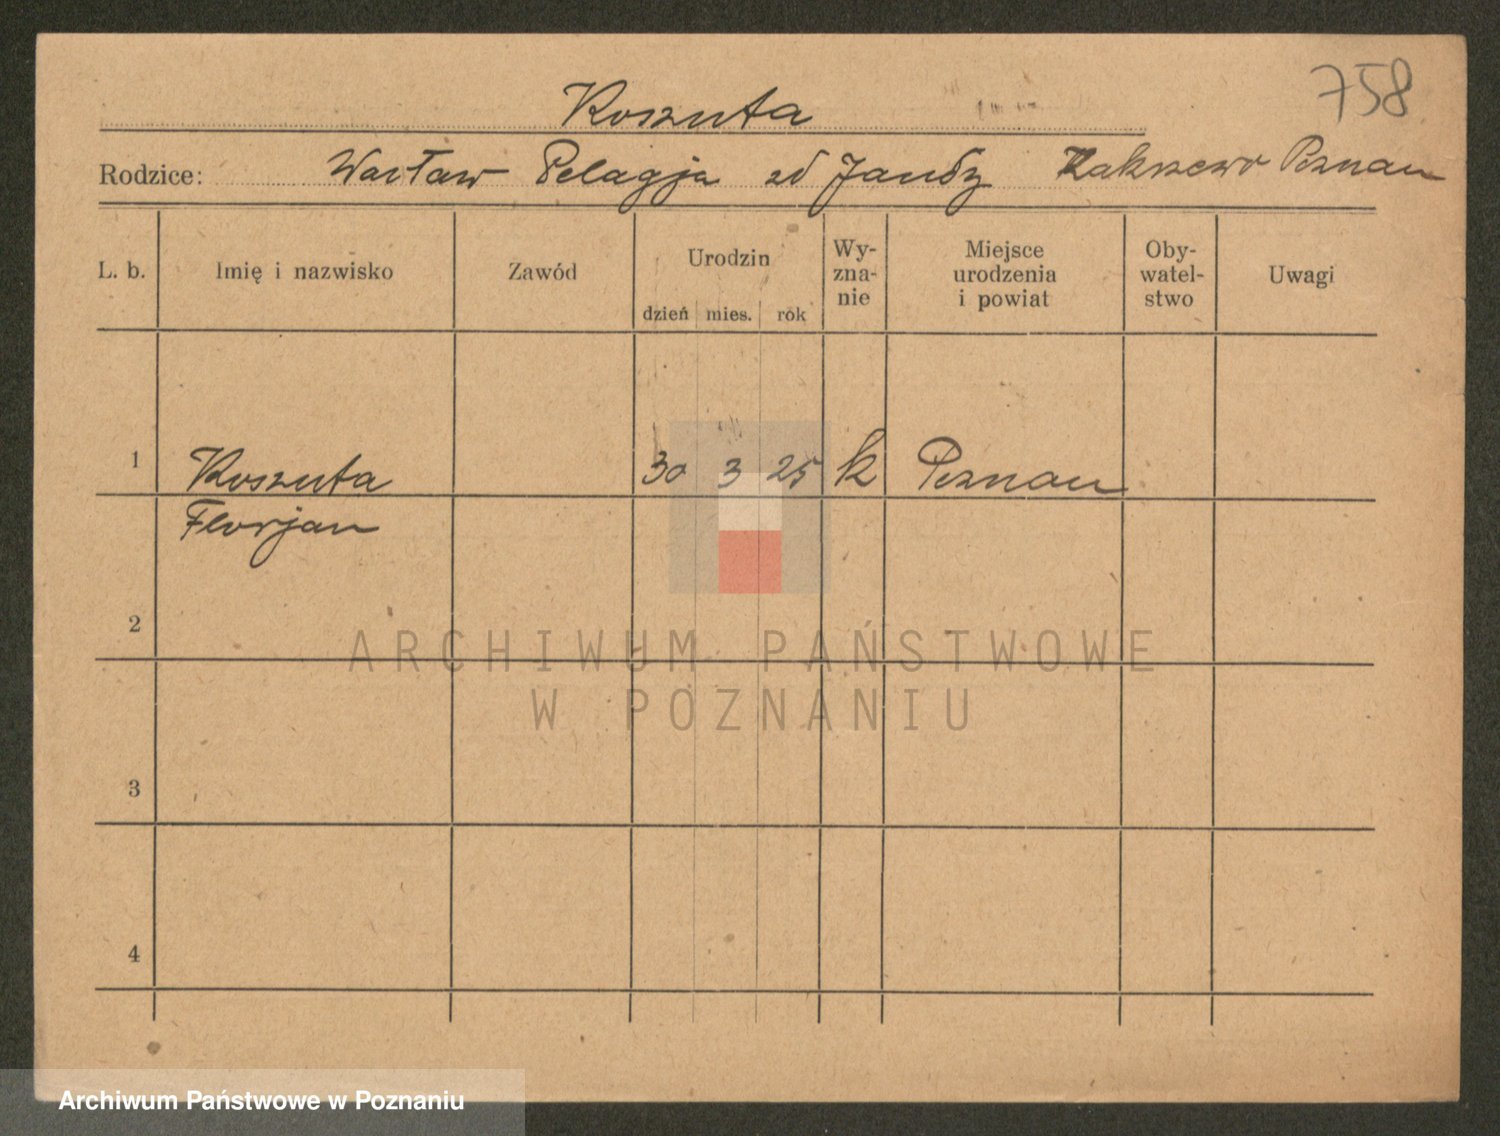 758
Koszuta
Rodzice: Wacław Pelagja zd Jandy Zakrzewo Poznan
L. b. Imię i nazwisko Zawód Urodzin dzień mies. rok Wy-zna-nie Miejsce urodzenia i powiat Oby-watel-stwo Uwagi
1 Koszuta 30 3 25 k Poznan
Florjan
2
ARCHIWUM PAŃSTWOWE
W POZNANIU
3
4
Archiwum Państwowe w Poznaniu